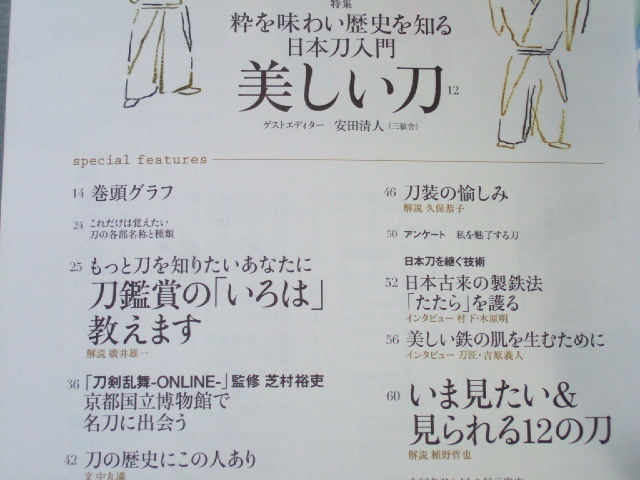 特集
粋を味わい歴史を知る
日本刀入門
美しい刀 12
ゲストエディター 安田清人（三猿舎）
special features
14 巻頭グラフ
24 これだけは覚えたい
刀の各部名称と種類
25 もっと刀を知りたいあなたに
刀鑑賞の「いろは」
教えます
解説 廣井雄一
36 「刀剣乱舞-ONLINE-」監修 芝村裕吏
京都国立博物館で
名刀に出会う
42 刀の歴史にこの人あり
文 中丸満
46 刀装の愉しみ
解説 久保恭子
50 アンケート 私を魅了する刀
日本刀を継ぐ技術
52 日本古来の製鉄法
「たたら」を護る
インタビュー 村下・木原明
56 美しい鉄の肌を生むために
インタビュー 刀匠・吉原義人
60 いま見たい＆
見られる12の刀
解説 植野哲也